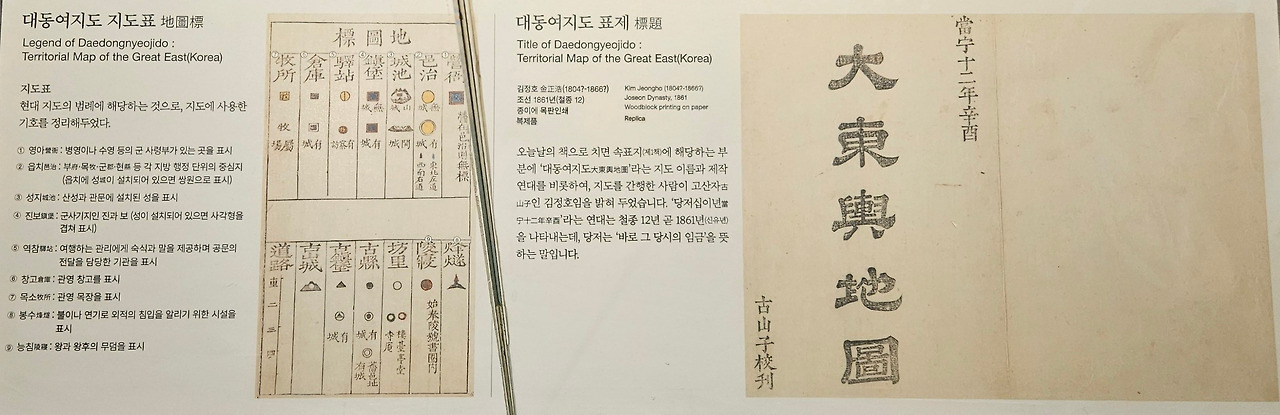 대동여지도 지도표 地圖標
Legend of Daedongnyeojido :
Territorial Map of the Great East(Korea)
지도표
현대 지도의 범례에 해당하는 것으로, 지도에 사용한
기호를 정리해두었다.
① 영아營衙 : 병영이나 수영 등의 군 사령부가 있는 곳을 표시
② 읍치邑治 : 부府·목牧·군郡·현縣 등 각 지방 행정 단위의 중심지
(읍치에 성城이 설치되어 있으면 쌍원으로 표시)
③ 성지城池 : 산성과 관문에 설치된 성을 표시
④ 진보鎭堡 : 군사기지인 진과 보 (성이 설치되어 있으면 사각형을
겹쳐 표시)
⑤ 역참驛站 : 여행하는 관리에게 숙식과 말을 제공하며 공문의
전달을 담당한 기관을 표시
⑥ 창고倉庫 : 관영 창고를 표시
⑦ 목소牧所 : 관영 목장을 표시
⑧ 봉수烽燧 : 불이나 연기로 외적의 침입을 알리기 위한 시설을
표시
⑨ 능침陵寢 : 왕과 왕후의 무덤을 표시
地圖標
營衙
邑治
城池
鎭堡
驛站
倉庫
牧所
無城
有城
山城
關城
無城
有城
有城
牧場
屬場
烽燧
陵寢
始末陵號書圈內
坊里
古縣
有城
古鎭堡
有城
古城
道路
대동여지도 표제 標題
Title of Daedongyeojido :
Territorial Map of the Great East(Korea)
김정호 金正浩(1804?-1866?)
조선 1861년(철종 12)
종이에 목판인쇄
복제품
Kim Jeongho (1804?-1866?)
Joseon Dynasty, 1861
Woodblock printing on paper
Replica
오늘날의 책으로 치면 속표지[제책]에 해당하는 부
분에 '대동여지도大東輿地圖'라는 지도 이름과 제작
연대를 비롯하여, 지도를 간행한 사람이 고산자古
山子인 김정호임을 밝혀 두었습니다. '당저십이년當
宁十二年辛酉'라는 연대는 철종 12년 곧 1861년(신유년)
을 나타내는데, 당저는 '바로 그 당시의 임금'을 뜻
하는 말입니다.
當宁十二年辛酉
大東輿地圖
古山子校刊